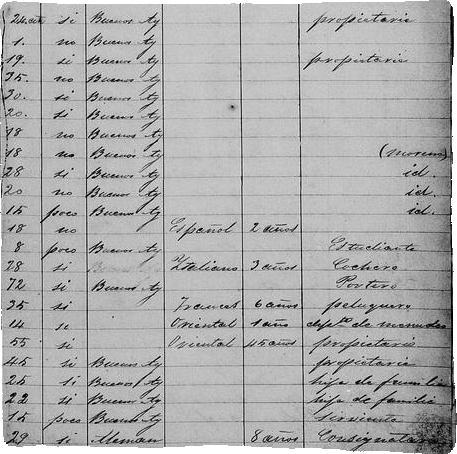 24 si Buenos Ay propietario
1. no Buenos Ay
19. si Buenos Ay propietario
35. no Buenos Ay
30. si Buenos Ay
20. si Buenos Ay
18 no Buenos Ay
18 no Buenos Ay (moreno)
28 si Buenos Ay id.
20 no Buenos Ay id.
15 poco Buenos Ay id.
18 no Español 2 años
8 poco Buenos Ay Estudiante
28 si Italiano 3 años Cochero
72 si Buenos Ay Portero
35 si Frances 6 años peluquero
14 si Oriental 1 año de menudeo
55 si Oriental 45 años propietario
45 si Buenos Ay propietaria
25 si Buenos Ay hija de familia
22 si Buenos Ay hija de familia
15 poco Buenos Ay sirviente
29 si Aleman 8 años Consignatario